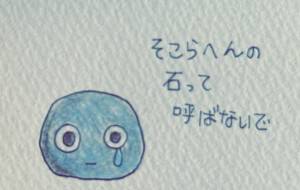 そこらへんの
石って
呼ばないで